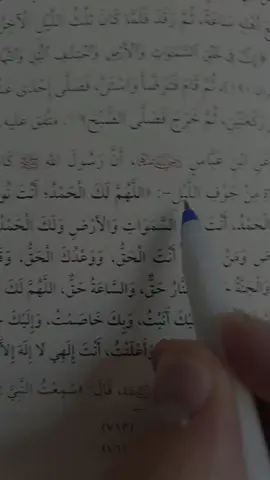 ثُمَّ رَقَدَ، فَلَمَّا كَانَ ثُلُثُ اللَّيْلِ الْآخِرُ
خَلْقِ السَّمَوَاتِ وَالْأَرْضِ وَاخْتِلَفِ الَّيْلِ وَالنَّهَارِ
ثُمَّ قَامَ فَتَوَضَّأَ وَاسْتَنَّ، فَصَلَّى إِحْدَى
رَكْعَتَيْنِ، ثُمَّ خَرَجَ فَصَلَّى الصُّبْحَ». متفق عليه
عَنِ ابْنِ عَبَّاسٍ ﵄، أَنَّ رَسُولَ اللهِ ﷺ كَانَ
مِنْ جَوْفِ اللَّيْلِ -: «اللَّهُمَّ لَكَ الْحَمْدُ؛ أَنْتَ
الْحَمْدُ، أَنْتَ السَّمَوَاتِ وَالْأَرْضِ وَلَكَ الْحَمْدُ
وَمَنْ أَنْتَ الْحَقُّ، وَوَعْدُكَ الْحَقُّ،
وَالْجَنَّةُ النَّارُ حَقٌّ، وَالسَّاعَةُ حَقٌّ، اللَّهُمَّ لَكَ
أَنَبْتُ، وَبِكَ خَاصَمْتُ، وَإِلَيْكَ
وَأَعْلَنْتُ، أَنْتَ إِلَهِي لَا إِلَهَ إِلَّا
قَالَ: «سَمِعْتُ النَّبِيَّ